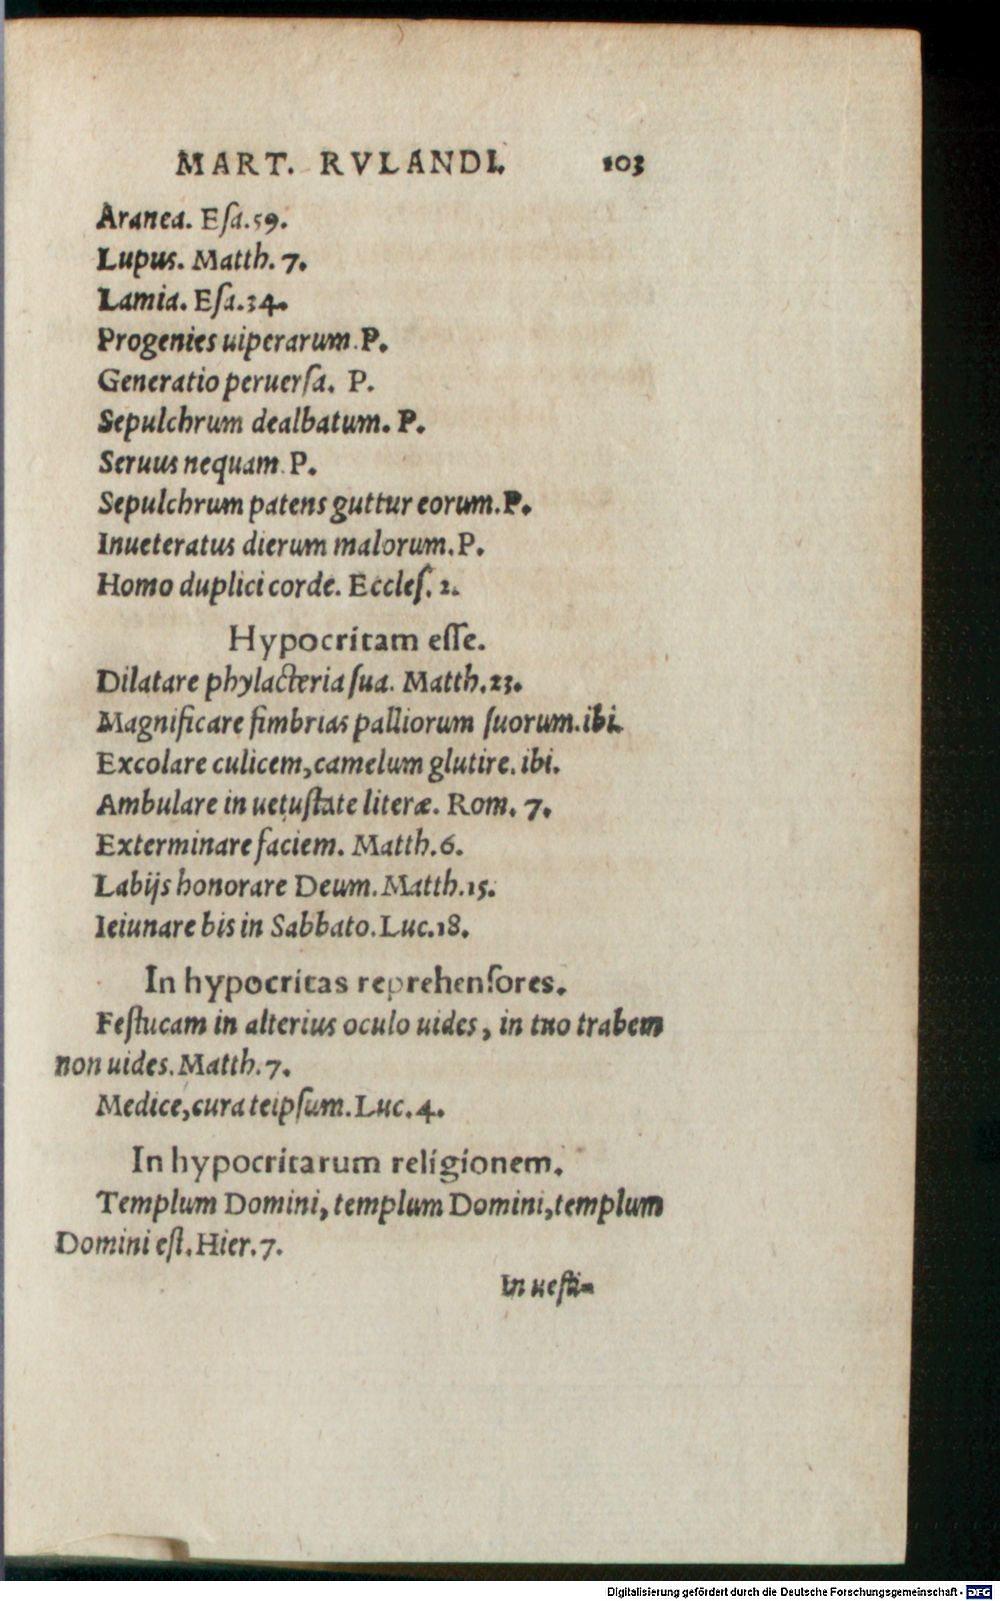 MART. RVLANDI. 103
Aranea. Eſa.59.
Lupus. Matth. 7.
Lamia. Eſa.34.
Progenies uiperarum. P.
Generatio peruerſa. P.
Sepulchrum dealbatum. P.
Seruus nequam. P.
Sepulchrum patens guttur eorum. P.
Inueteratus dierum malorum. P.
Homo duplici corde. Eccleſ. 2.
Hypocritam eſſe.
Dilatare phylacteria ſua. Matth.23.
Magnificare fimbrias palliorum ſuorum. ibi.
Excolare culicem, camelum glutire. ibi.
Ambulare in uetuſtate literæ. Rom. 7.
Exterminare faciem. Matth.6.
Labijs honorare Deum. Matth.15.
Ieiunare bis in Sabbato. Luc.18.
In hypocritas reprehenſores.
Feſtucam in alterius oculo uides, in tuo trabem
non uides. Matth.7.
Medice, cura teipſum. Luc.4.
In hypocritarum religionem.
Templum Domini, templum Domini, templum
Domini eſt. Hier.7.
In ueſti-
Digitalisierung gefördert durch die Deutsche Forschungsgemeinschaft - DFG